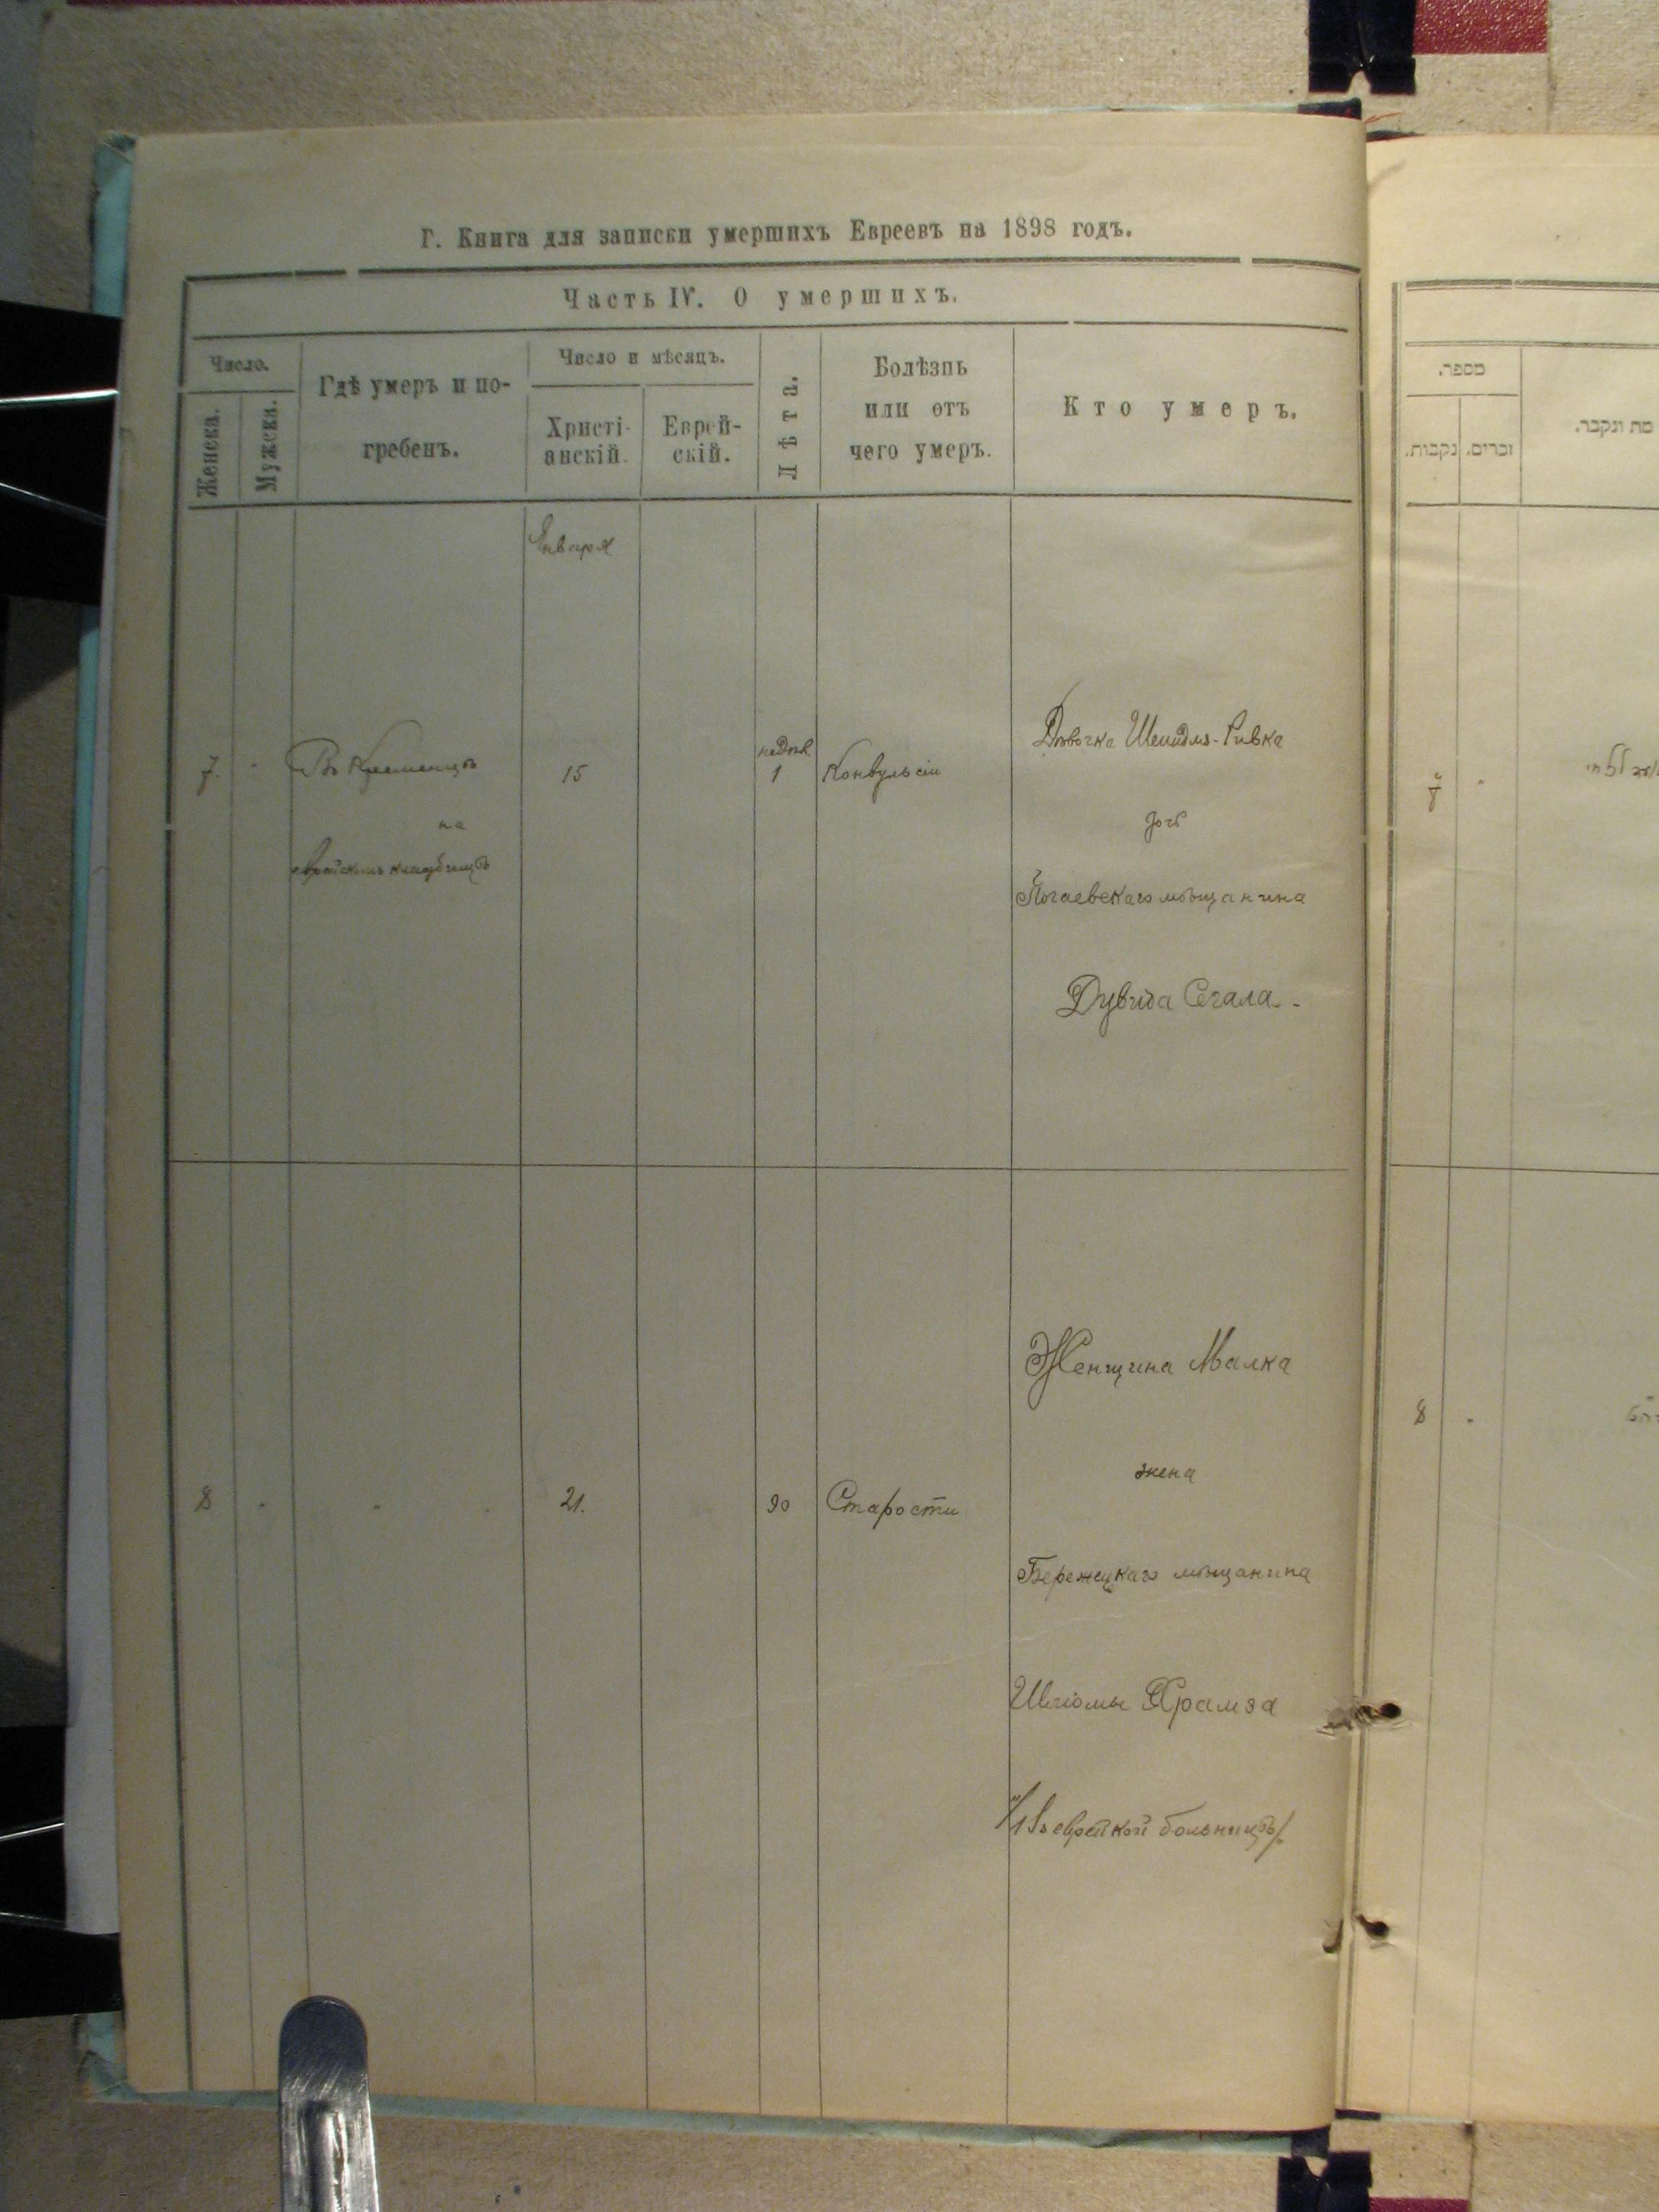 Г. Книга для записки умершихъ Евреевъ на 1898 годъ.
Часть IV. О умершихъ.
Число.
Женска.
Мужска.
Гдѣ умеръ и по-
гребенъ.
Число и мѣсяцъ.
Христі-
анскій.
Еврей-
скій.
Лѣта.
Болѣзнь
или отъ
чего умеръ.
Кто умеръ.
Января
7.
Въ Кременцѣ
на
еврейскомъ кладбищѣ
15
недѣл
1
Конвульсіи
Дѣвочка Шейндля-Ривка
дочь
Почаевскаго мѣщанина
Дувида Сегала
8
21.
90
Старости
Женщина Малка
жена
Бережецкаго мѣщанина
Шліомы Храмза
/Въ еврейской больницѣ/
מספר.
נקבות.
זכרים.
מת ונקבר.
7
8